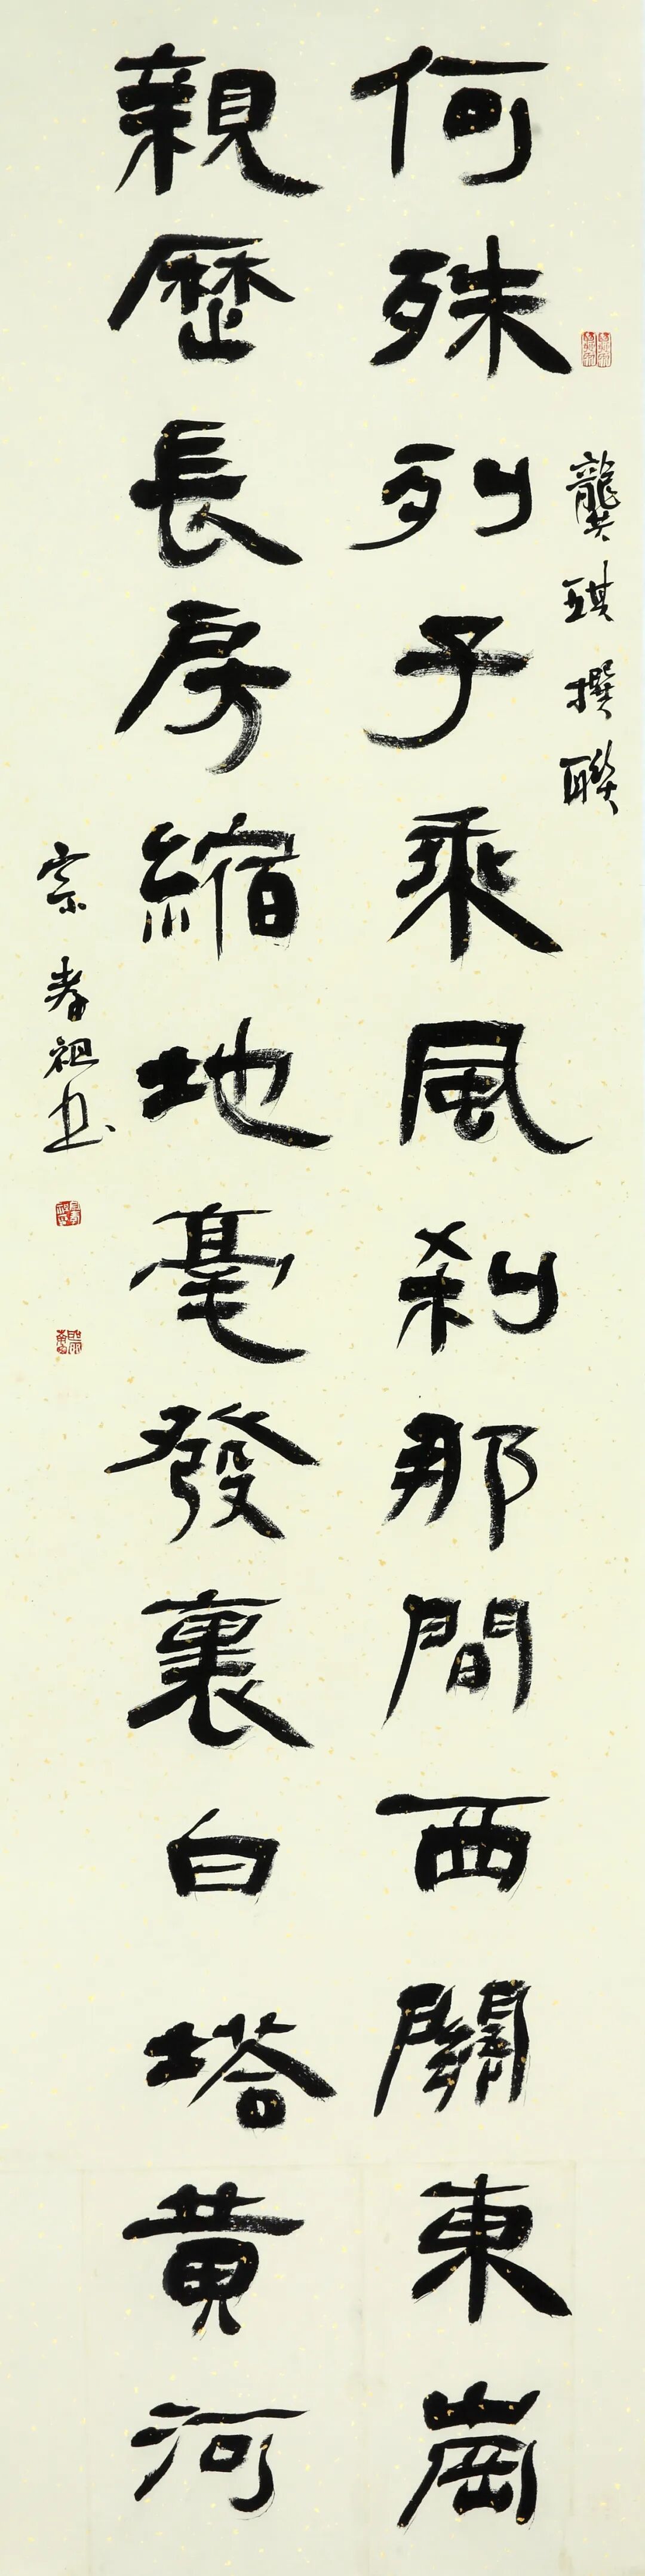 龔琪撰聯
何殊列子乘風刹那間西關東崗
親歷長房縮地毫發裏白塔黄河
宗孝祖书